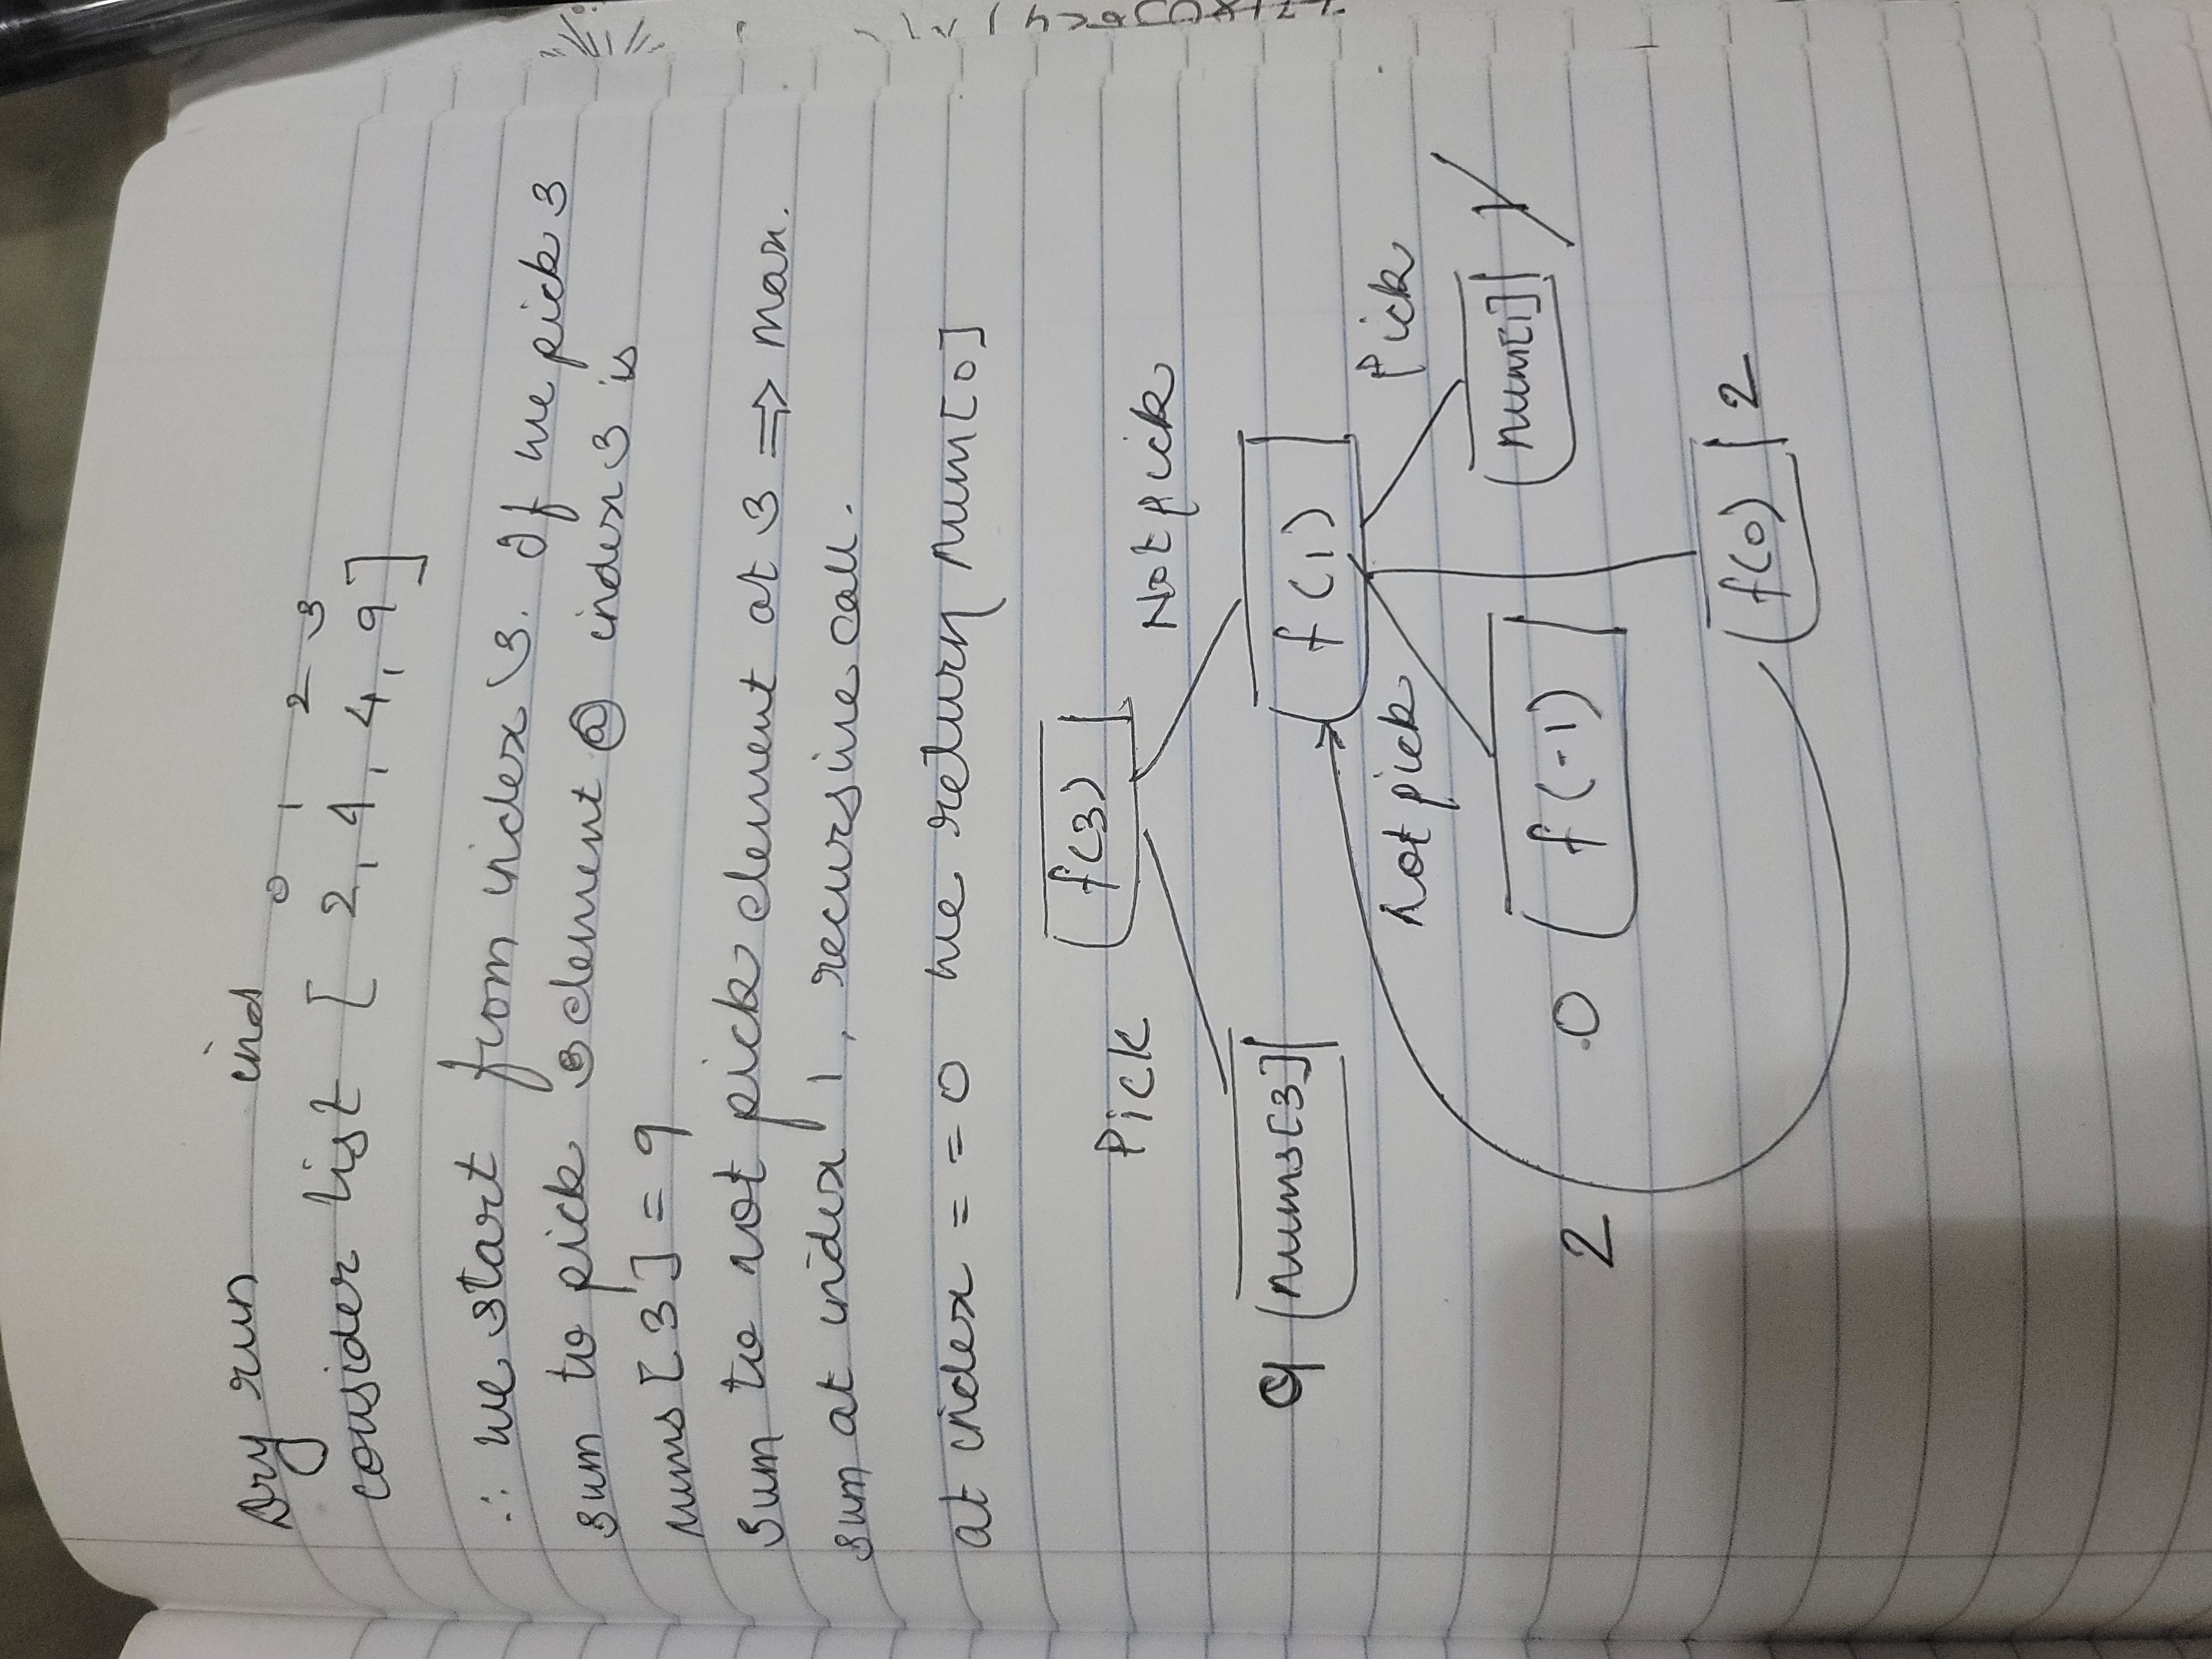 Dry run ind
0 1 2 3
consider list [ 2, 1, 4, 9 ]
∴ we start from index 3. If we pick 3
sum to pick element @ index 3 is
nums [3] = 9
sum to not pick element at 3 ⇒ max.
sum at index 1, recursive call.
at index = = 0 we return num[0]
f(3)
Pick Not pick
9 nums[3] f(1)
Not pick Pick
num[1] 1
2 0 f(-1)
f(0) 2